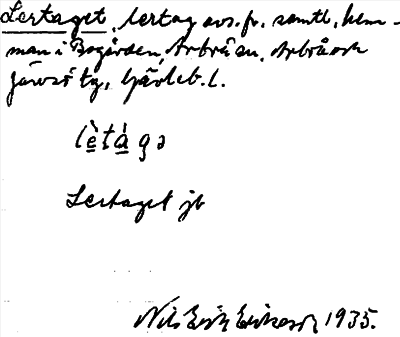 Lertaget, lertag avs. fr. samtl. hem-
man i Bogården, Arbrå sn, Arbrå och
Järvsö tg, Gävleb. l.
lètàgə
Lertaget jb
Nils Erik Eriksson 1935.